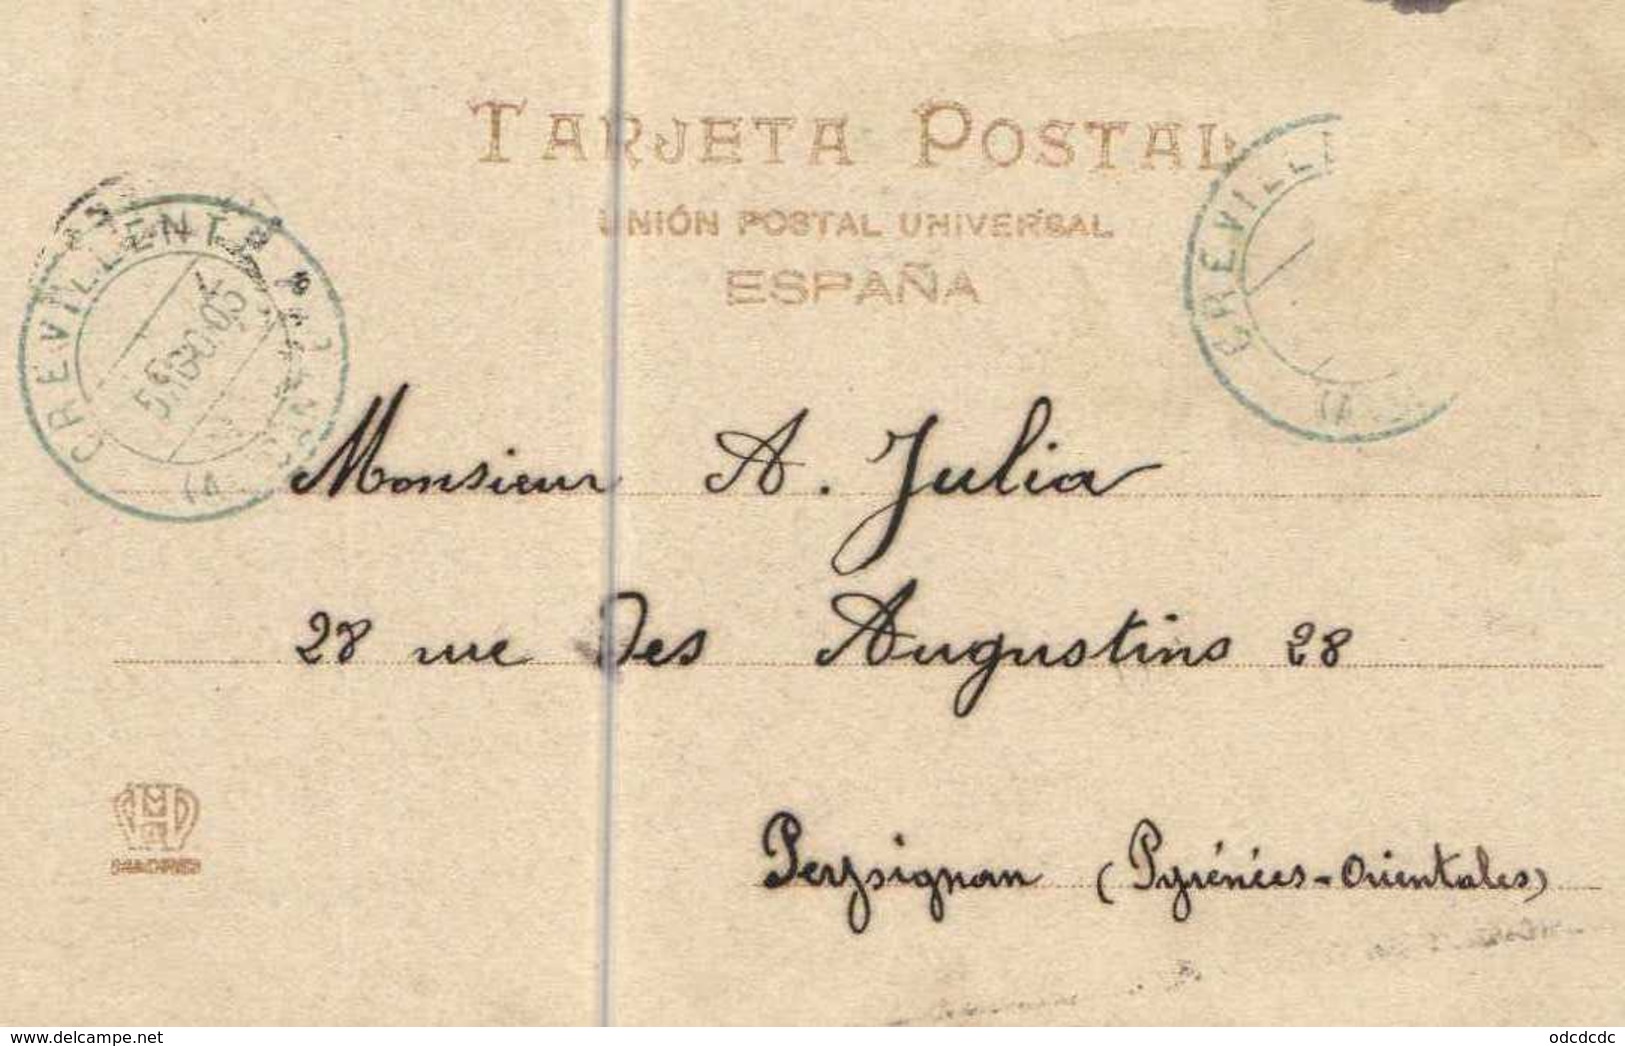 TARJETA POSTAL
UNIÓN POSTAL UNIVERSAL
ESPAÑA
CREVILLENTE
CREVILLE
Monsieur A. Julia
28 rue des Augustins 28
Perpignan (Pyrénées-Orientales)
MADRID
www.delcampe.net
odcdcdc